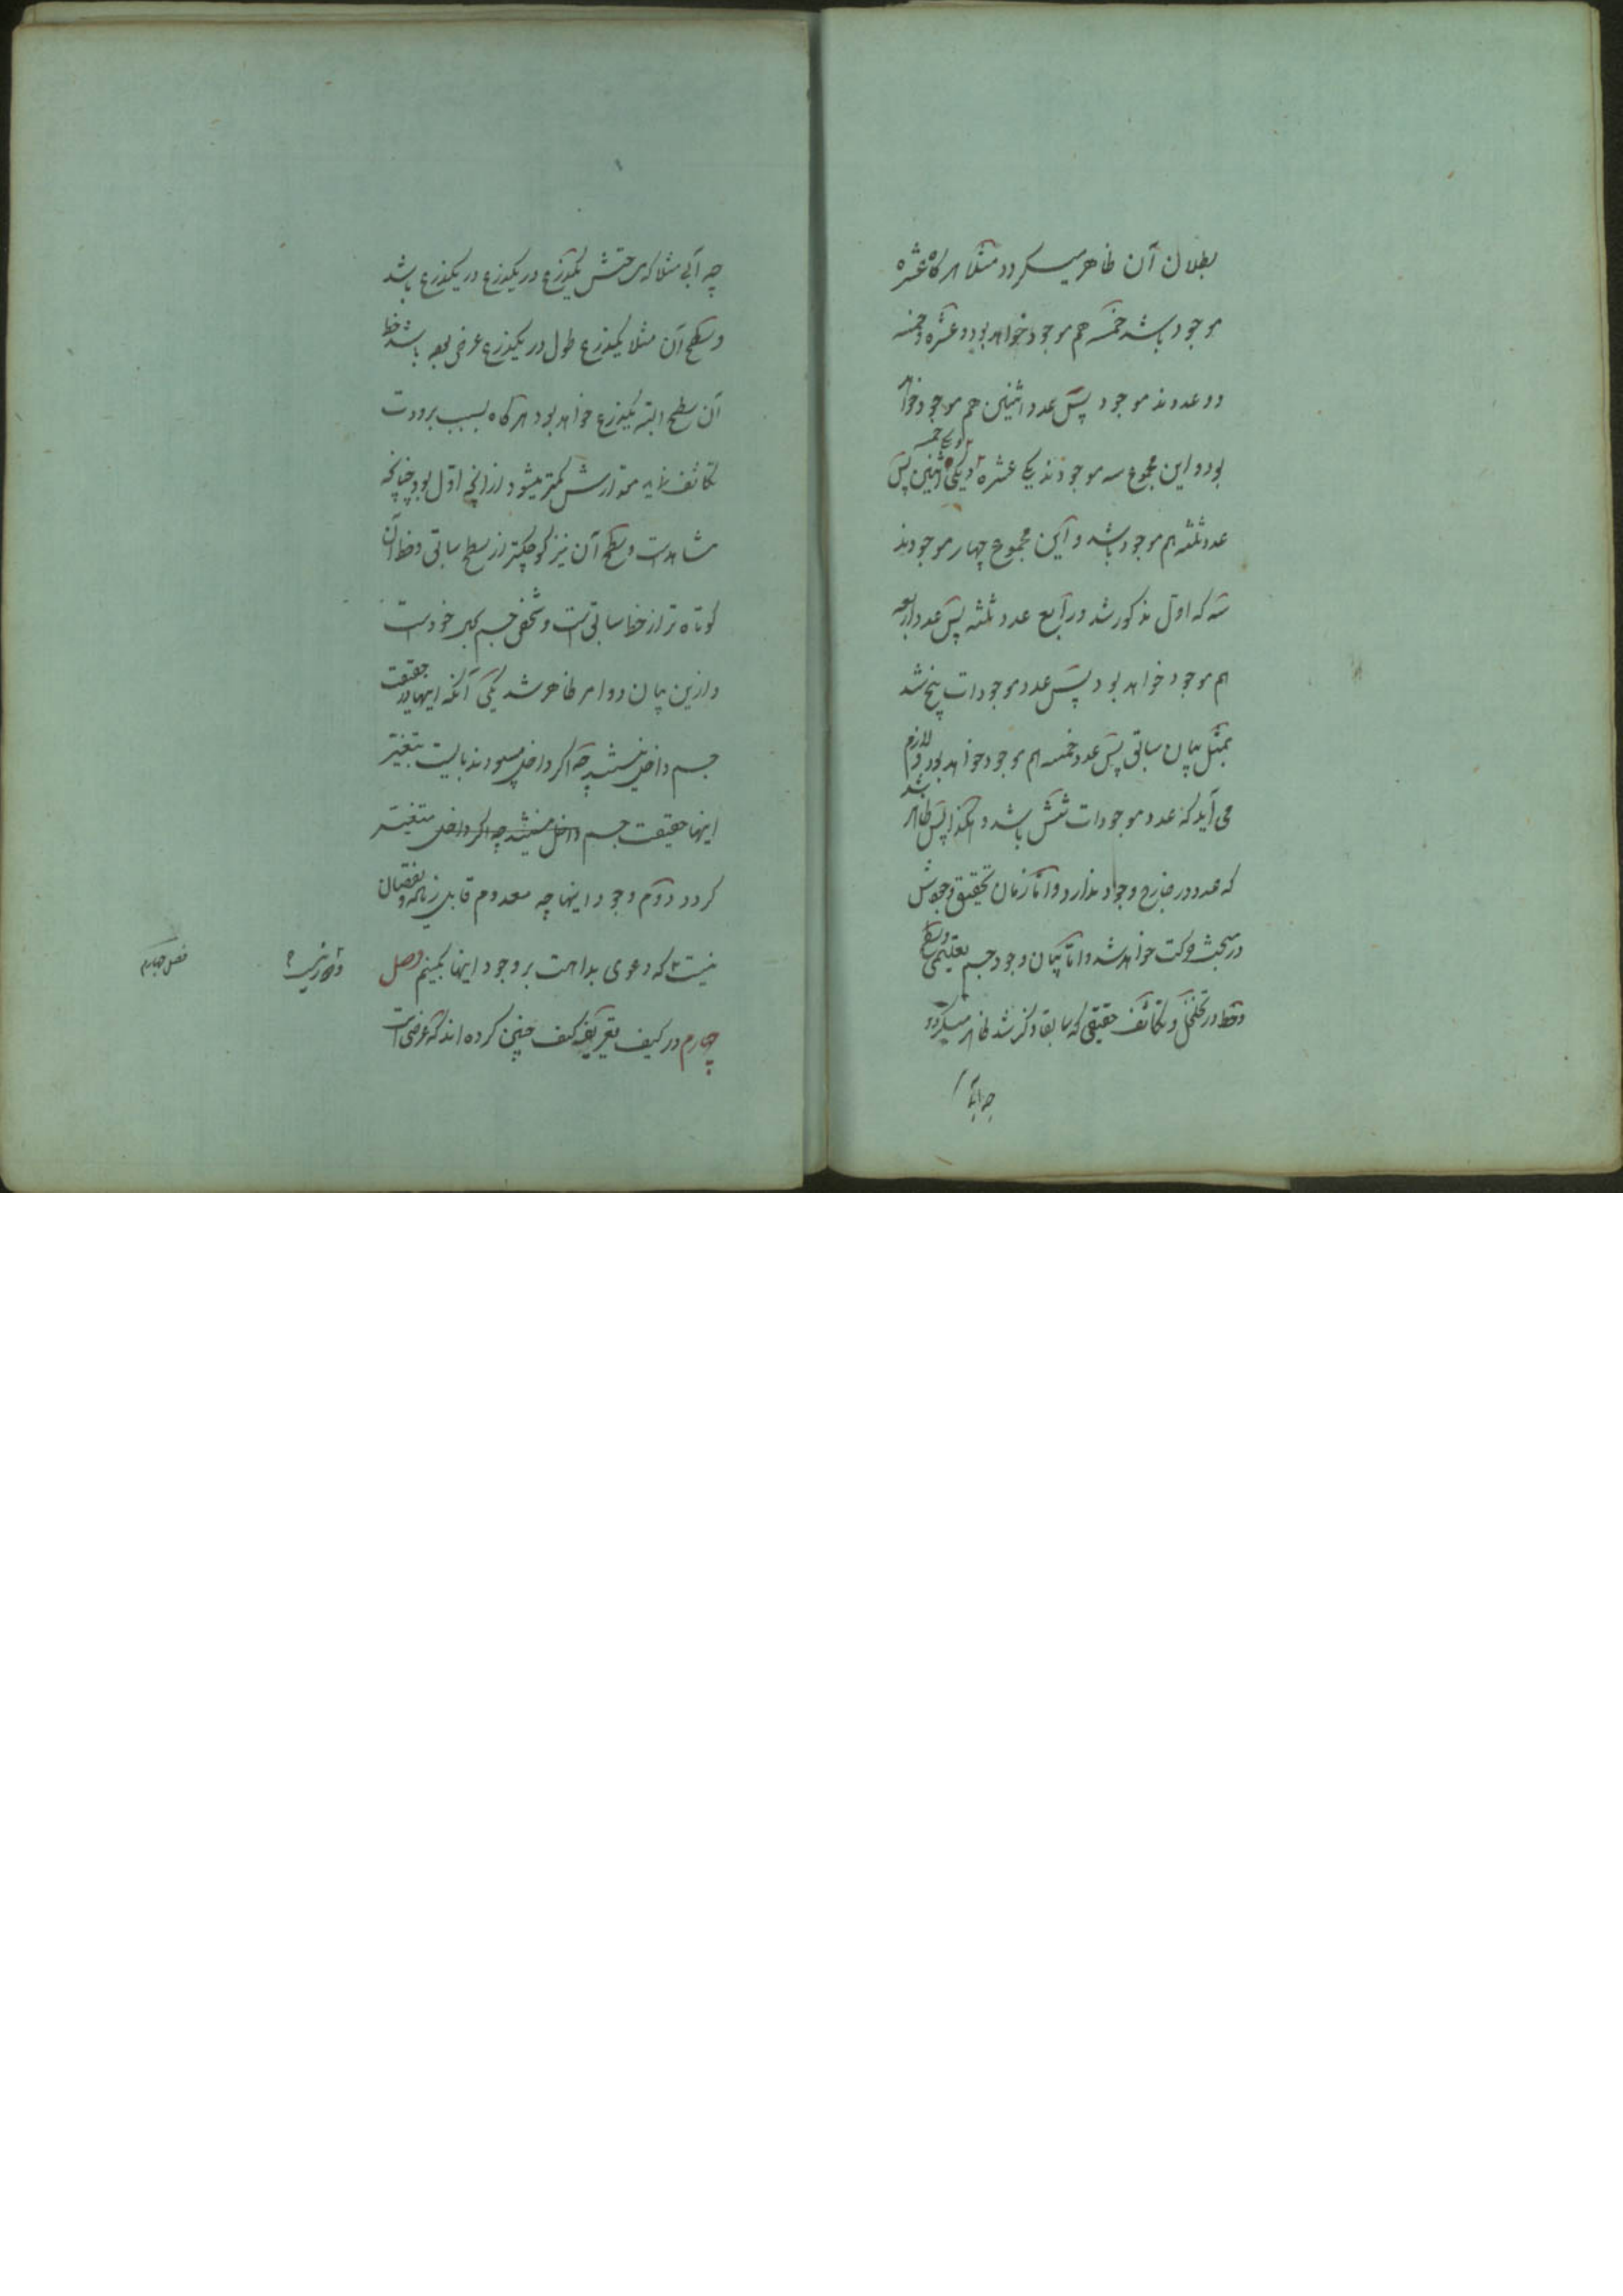 بطلان آن ظاهر میگردد مثلا هرگاه عشره
موجود باشد خمسه هم موجود خواهد بود و عشره و خمسه
دو عددند موجود پس عدد اثنین هم موجود خواهد
بود و این مجموع سه موجودند یکی عشره و یکی خمسه و یکی اثنین پس
عدد ثلثه هم موجود باشد و این مجموع چهار موجودند
سه که اول مذکور شد و رابع عدد ثلثه پس عدد اربعه
هم موجود خواهد بود پس عدد موجودات پنج شد
بمثل بیان سابق پس عدد خمسه هم موجود خواهد بود و لازم
می آید که عدد موجودات شش باشد و هکذا پس ظاهر شد
که عدد در خارج وجود ندارد و اما زمان تحقیق وجودش
در مبحث حرکت خواهد شد و اما بیان وجود جسم تعلیمی و سطح
و خط در تخلخل و تکاثف حقیقی که سابقا ذکر شد ظاهر میگردد
چه آبی
چه آبی مثلا که یکذرع در یکذرع در یکذرع باشد
و سطح آن مثلا یکذرع طول در یکذرع عرض باشد و خط
آن سطح البته یکذرع خواهد بود هرگاه بسبب برودت
تکاثف مقدارش کمتر میشود از آنچه اول بود چنانچه
مشاهدست و سطح آن نیز کوچکتر از سطح سابق و خط آن
کوتاه تر از خط سابق است و شخص جسم خودست
و ازین بیان دو امر ظاهر شد یکی آنکه اینها در حقیقت
جسم داخل نیستند چه اگر داخل میبودند بایست بتغیر
اینها حقیقت جسم داخل نیستند چه اگر داخل متغیر
گردد دوم وجود اینها چه معدوم قابل زیاده و نقصان
نیست که دعوی بداهت بر وجود اینها بکنیم فصل
چهارم در کیف تعریف کیف چنین کرده اند که عرضی است
فصل چهارم